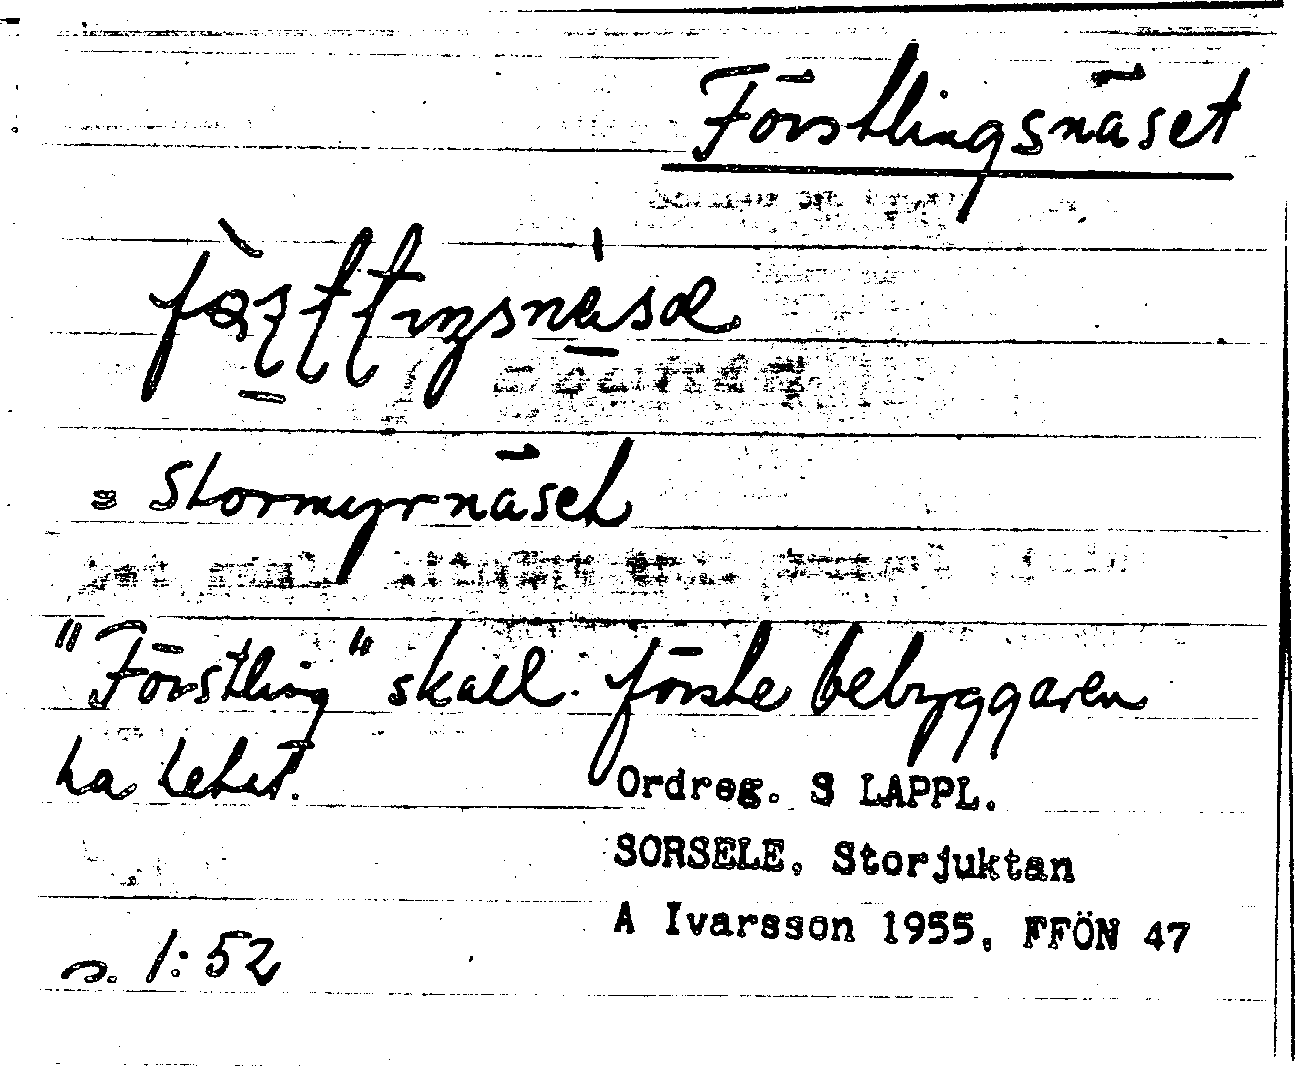 Förstlingsnäset
= Stormyrnäset
"Förstling" skall förste bebyggaren
ha hetat.
Ordreg. S LAPPL.
SORSELE. Storjuktan
A Ivarsson 1955. FFÖN 47
s. 1:52